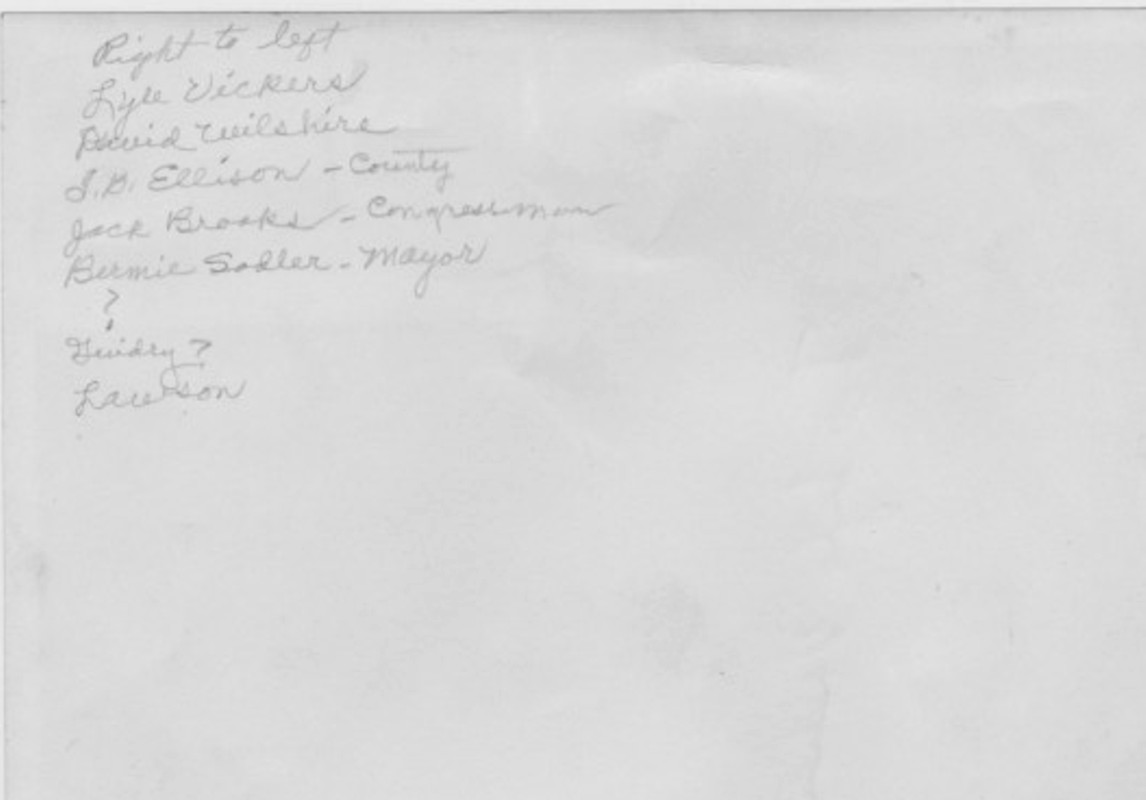 Right to left
Lyle Vickers
David Wilshire
J.B. Ellison - County
Jack Brooks - Congressman
Bernie Sadler - Mayor
?
Guidry ?
Lawson